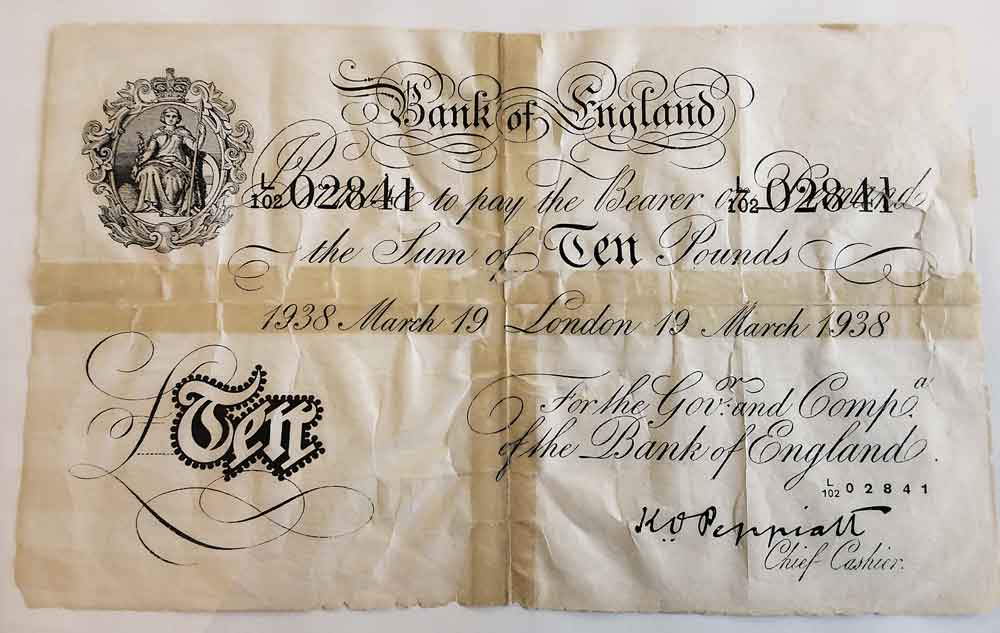 Bank of England
L/102 02841 L/102 02841
Promise to pay the Bearer on Demand
the Sum of Ten Pounds
1938 March 19 London 19 March 1938
£ Ten
For the Govr. and Compa.
of the Bank of England.
L/102 02841
K O Peppiatt
Chief Cashier.